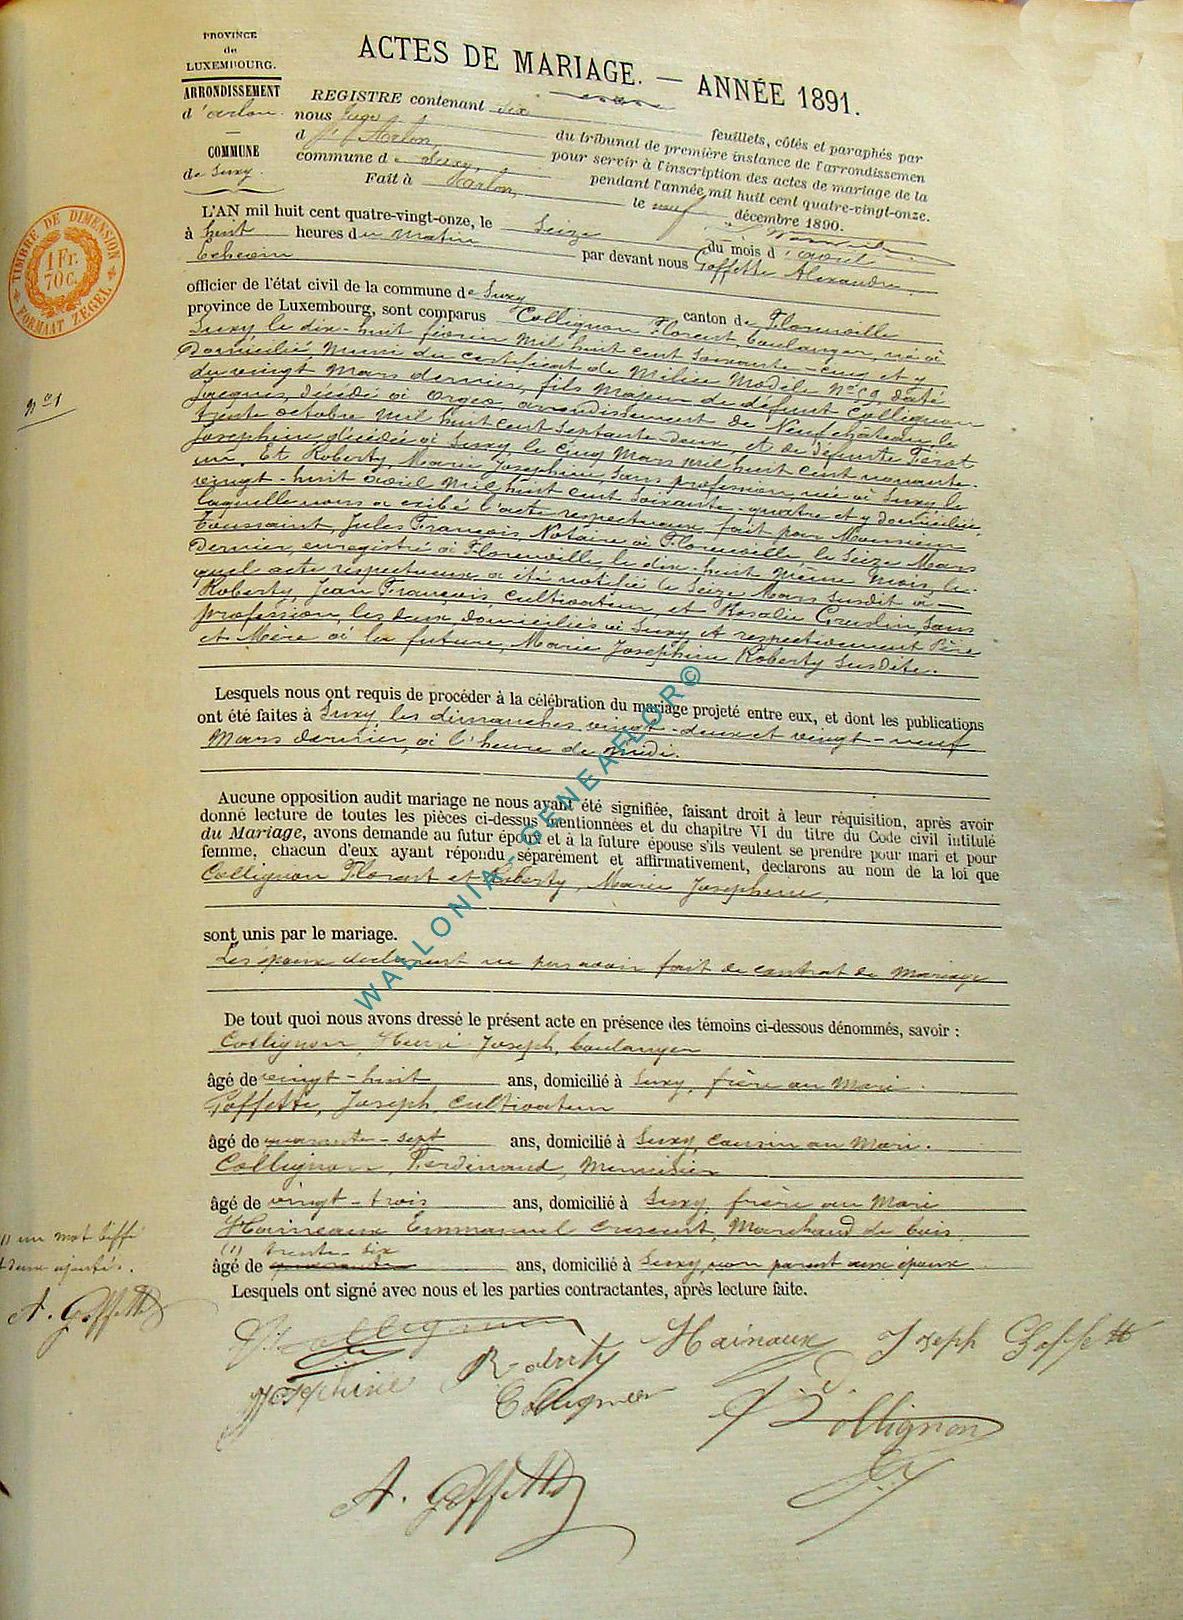 PROVINCE
de
LUXEMBOURG.
ARRONDISSEMENT
d'arlon.
COMMUNE
de Suxy.
ACTES DE MARIAGE. — ANNÉE 1891.
REGISTRE contenant six feuillets, côtés et paraphés par
nous Juge du tribunal de première instance de l'arrondissemen
d Arlon, pour servir à l'inscription des actes de mariage de la
commune de Suxy pendant l'année mil huit cent quatre-vingt-onze.
Fait à Arlon, le neuf décembre 1890.
TIMBRE DE DIMENSION
1 Fr.
70 c.
FORMAAT ZEGEL
L'AN mil huit cent quatre-vingt-onze, le Seize du mois d'avril
à huit heures du matin par devant nous Goffette Alexandre
Echevin
officier de l'état civil de la commune de Suxy canton de Florenville
province de Luxembourg, sont comparus Collignon Florent, boulanger, né à
Suxy le dix-huit février mil huit cent soixante-cinq et y
Domicilié, muni du certificat de Milice Modèle N° 59, daté
du vingt Mars dernier, fils majeur de défunt Collignon
Jacques, décédé à Orgeo, arrondissement de Neufchâteau, le
trente octobre mil huit cent septante-deux, et de défunte
Joséphine, décédée à Suxy, le cinq Mars mil huit cent nonante-
un. Et Roberty, Marie Joséphine, sans profession, née à Suxy le
vingt-huit avril mil huit cent soixante-quatre et y domiciliée,
laquelle nous a exibé l'acte respectueux fait par Monsieur
Toussaint, Jules François, Notaire à Florenville, le Seize Mars
Dernier, enregistré à Florenville, le dix-huit même mois, le-
quel acte respectueux a été notifié le Seize Mars susdit à —
Roberty, Jean François, cultivateur, et Rosalie Sans
profession, les deux domiciliés à Suxy et respectivement Père
et Mère à la future, Marie Joséphine Roberty susdite.
N° 1
Lesquels nous ont requis de procéder à la célébration du mariage projeté entre eux, et dont les publications
ont été faites à Suxy, les dimanches vingt-deux et vingt-neuf
Mars dernier, à l'heure de midi.
Aucune opposition audit mariage ne nous ayant été signifiée, faisant droit à leur réquisition, après avoir
donné lecture de toutes les pièces ci-dessus mentionnées et du chapitre VI du titre du Code civil intitulé
du Mariage, avons demandé au futur époux et à la future épouse s'ils veulent se prendre pour mari et pour
femme, chacun d'eux ayant répondu séparément et affirmativement, declarons au nom de la loi que
Collignon Florent et Roberty, Marie Josephine,
sont unis par le mariage.
Les époux déclarent ne pas avoir fait de contrat de mariage
De tout quoi nous avons dressé le présent acte en présence des témoins ci-dessous dénommés, savoir :
Collignon, Henri Joseph, boulanger
âgé de vingt-huit ans, domicilié à Suxy, frère au Mari.
Goffette, Joseph, cultivateur
âgé de quarante-sept ans, domicilié à Suxy, cousin au Mari.
Collignon, Ferdinand, Menuisier
âgé de vingt-trois ans, domicilié à Suxy, frère au Mari
Hainaux Emmanuel Crescent, Marchand de bois
(1) trente-six
âgé de quarante ans, domicilié à Suxy, non parent aux époux
Lesquels ont signé avec nous et les parties contractantes, après lecture faite.
(1) un mot biffé
deux ajoutés.
A. Goffette
Collignon
Hainaux
Joseph Goffette
Josephine Roberty
Collignon
Collignon
A. Goffette
WALLONIA-GENEAFLOR©